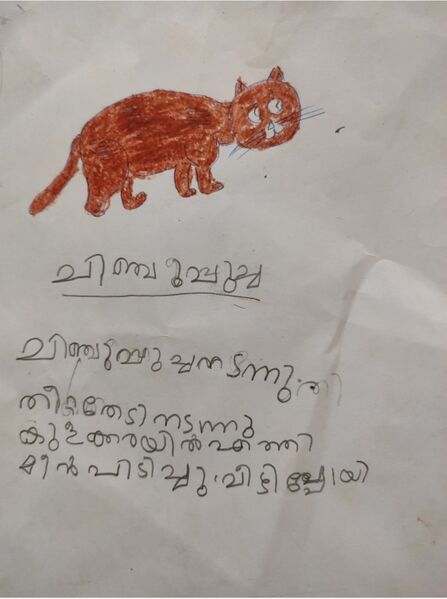 ചിഞ്ചുപ്പുച്ച
ചിഞ്ചുപ്പുച്ചനടന്നു തി
തീറ്റതേടിനടന്നു
കുളക്കരയിൽഎത്തി
മീൻപിടിച്ചു വീട്ടിപ്പോയി